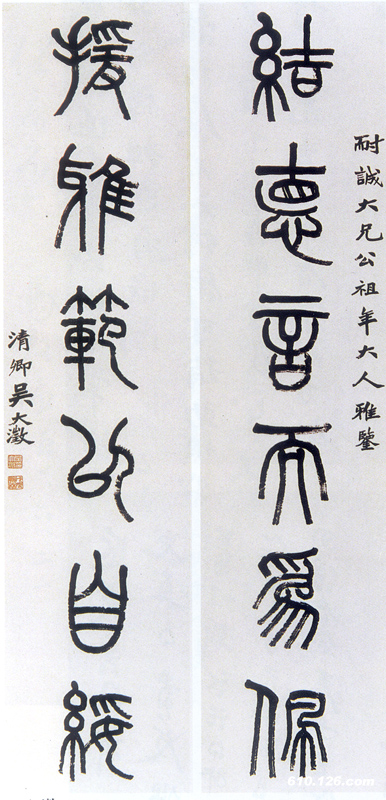 耐誠大兄公祖年大人雅鑒
結悳言而爲佩
援雅範以自綏
清卿吴大澂
610.126.com